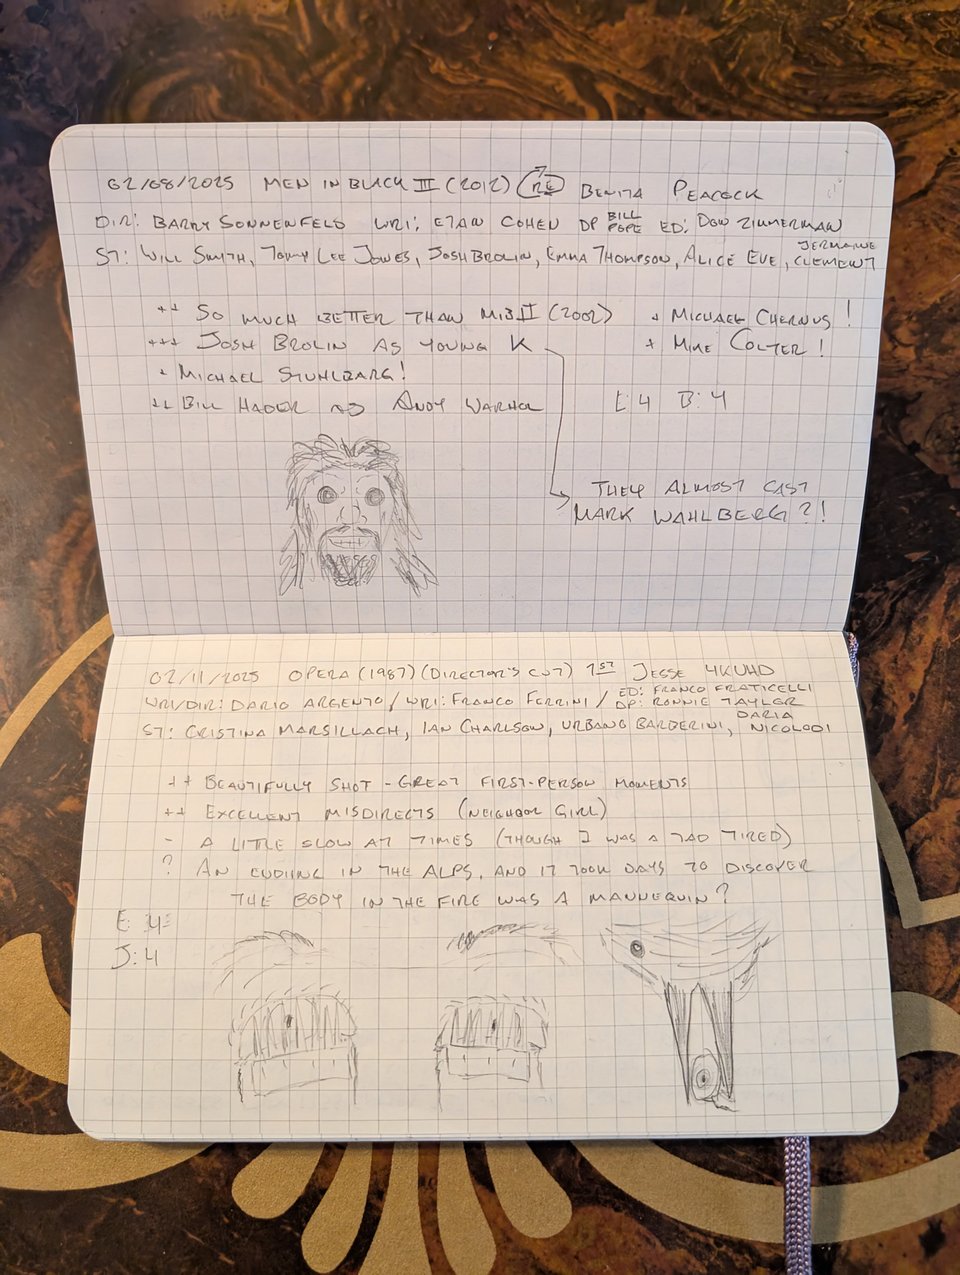 02/08/2025 MEN IN BLACK III (2012) RE BENITA PEACOCK
DIR: BARRY SONNENFELD WRI: ETAN COHEN DP BILL POPE ED: DON ZIMMERMAN
ST: WILL SMITH, TOMMY LEE JONES, JOSH BROLIN, EMMA THOMPSON, ALICE EVE, JERMAINE CLEMENT
++ SO MUCH BETTER THAN MIB II (2002) + MICHAEL CHERNUS!
+++ JOSH BROLIN AS YOUNG K + MIKE COLTER!
+ MICHAEL STUHLBARG!
++ BILL HADER → ANDY WARHOL E:4 B:4
THEY ALMOST CAST
MARK WAHLBERG?!
02/11/2025 OPERA (1987) (DIRECTOR'S CUT) 1ST JESSE 4KUHD
WRI/DIR: DARIO ARGENTO/WRI: FRANCO FERRINI/ED: FRANCO FRATICELLI
DP: RONNIE TAYLOR
ST: CRISTINA MARSILLACH, IAN CHARLSON, URBANO BARBERINI, DARIA NICOLODI
++ BEAUTIFULLY SHOT - GREAT FIRST-PERSON MOMENTS
++ EXCELLENT MISDIRECTS (NEIGHBOR GIRL)
- A LITTLE SLOW AT TIMES (THOUGH I WAS A TAD TIRED)
? AN ENDING IN THE ALPS, AND IT TOOK DAYS TO DISCOVER
THE BODY IN THE FIRE WAS A MANNEQUIN?
E: 4
J: 4